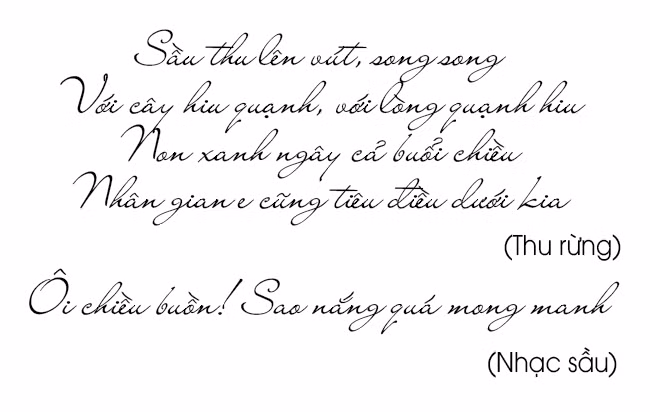 Sầu thu lên vút, song song
Với cây hiu quạnh, với lòng quạnh hiu
Non xanh ngây cả buổi chiều
Nhân gian e cũng tiêu điều dưới kia
(Thu rừng)
Ôi chiều buồn! Sao nắng quá mong manh
(Nhạc sầu)